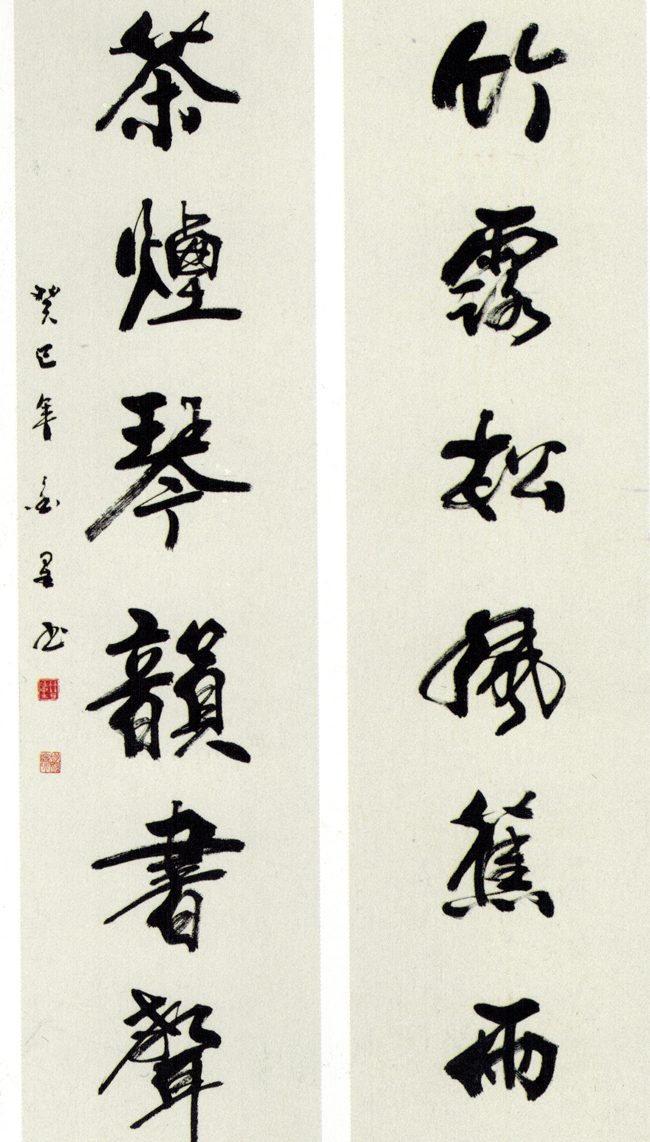 竹露松風蕉雨
茶煙琴韻書聲
癸巳年金星书